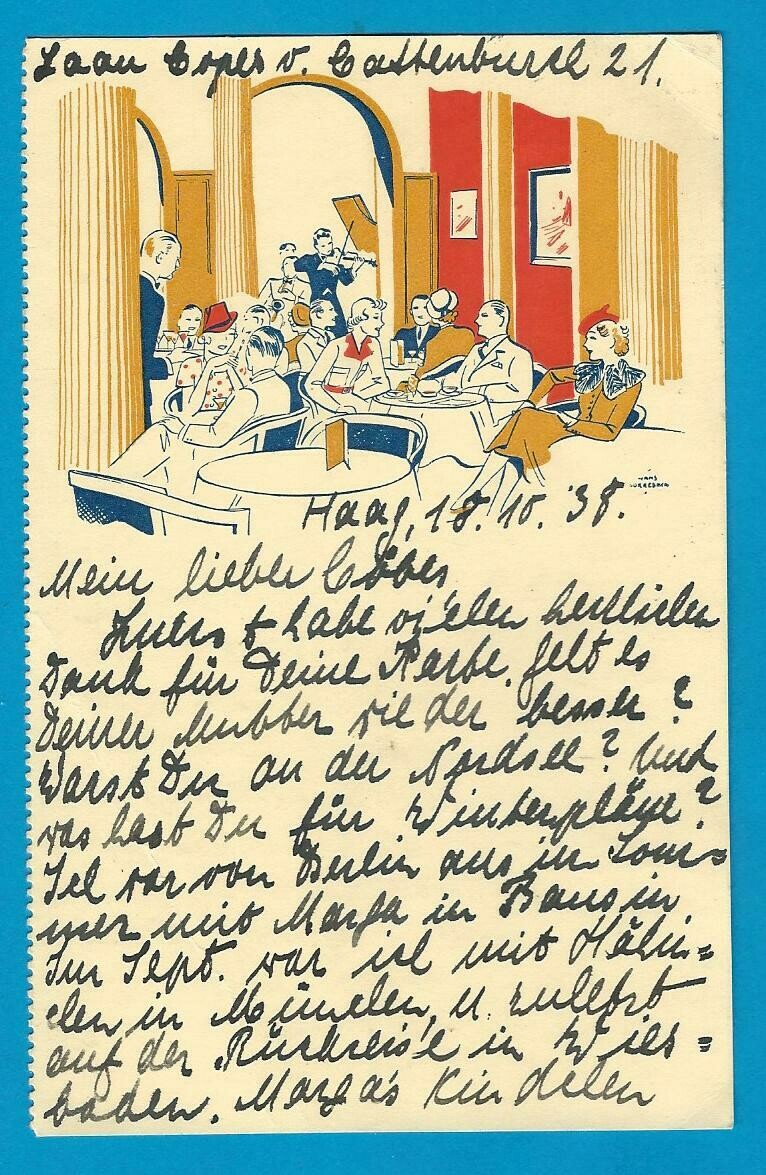 Laan Copes v. Cattenburch 21.
HANS
Haag, 18.10.'38.
Mein lieber Cöbes,
Zuers t habe vielen herzlichen
Dank für Deine Karte. Geht es
Deiner Mutter wieder besser?
Warst Du an der Nordsee? Und
was hast Du für Winterpläne?
Ich war von Berlin aus im Som=
mer mit Marga in Bansin
Im Sept. war ich mit Hähn=
chen in München, u. zuletzt
auf der Rückreise in Wies=
baden. Marga's Kindchen